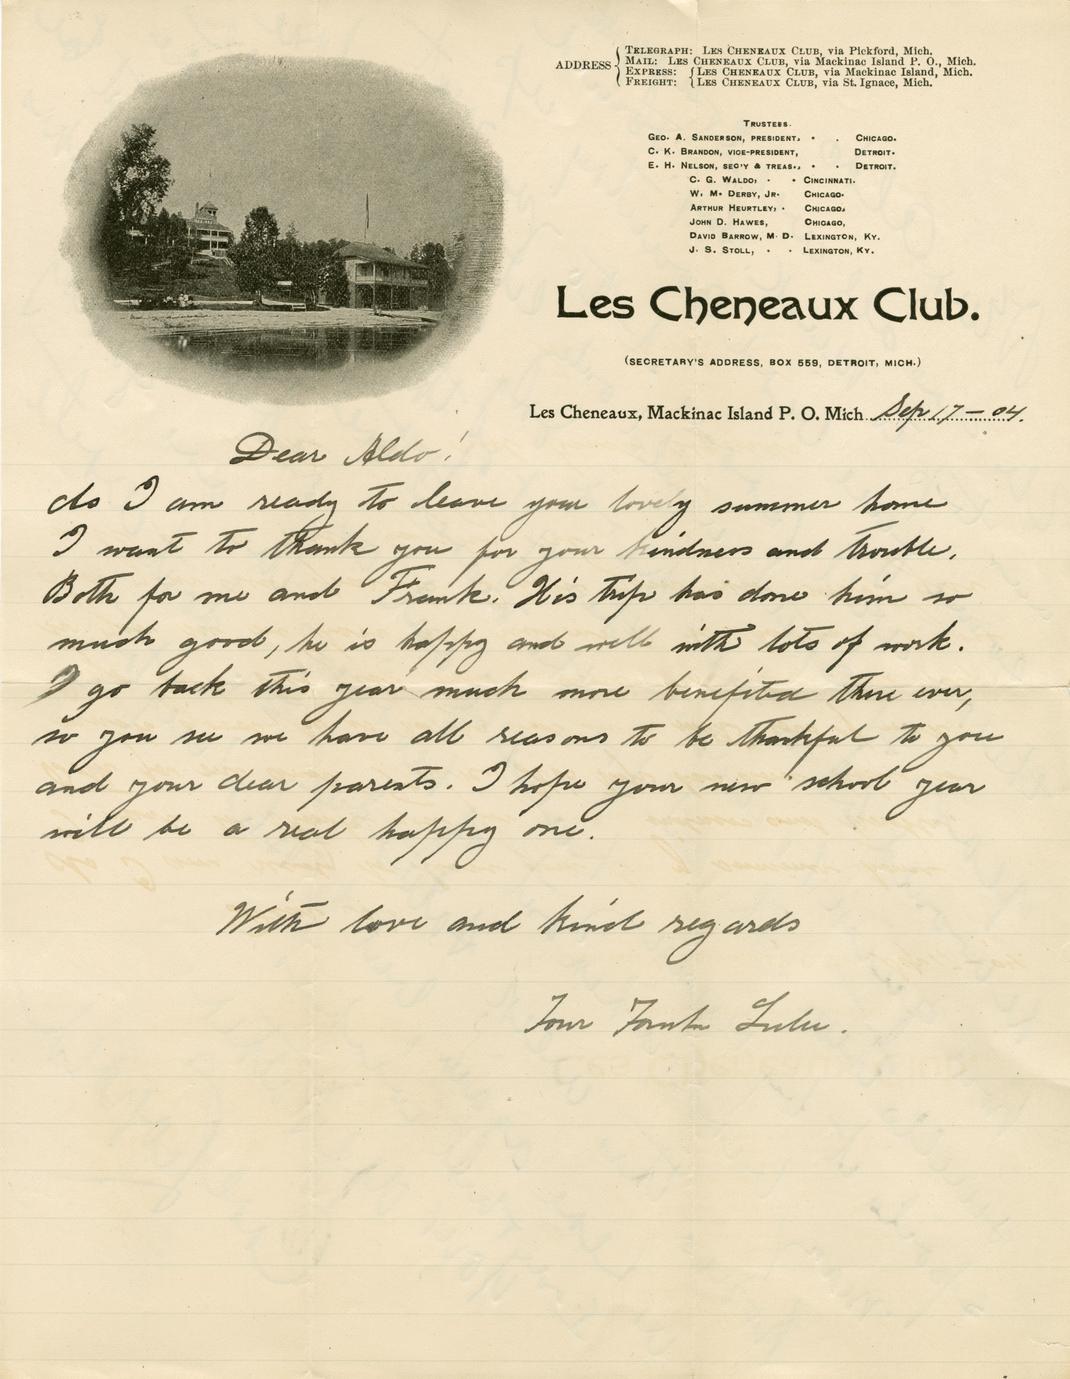 ADDRESS
TELEGRAPH: LES CHENEAUX CLUB, via Pickford, Mich.
MAIL: LES CHENEAUX CLUB, via Mackinac Island P. O., Mich.
EXPRESS: LES CHENEAUX CLUB, via Mackinac Island, Mich.
FREIGHT: LES CHENEAUX CLUB, via St. Ignace, Mich.
TRUSTEES.
GEO. A. SANDERSON, PRESIDENT, CHICAGO.
C. K. BRANDON, VICE-PRESIDENT, DETROIT.
E. H. NELSON, SEC'Y & TREAS., DETROIT.
C. G. WALDO, CINCINNATI.
W. M. DERBY, JR. CHICAGO.
ARTHUR HEURTLEY, CHICAGO,
JOHN D. HAWES, CHICAGO,
DAVID BARROW, M. D. LEXINGTON, KY.
J. S. STOLL, LEXINGTON, KY.
Les Cheneaux Club.
(SECRETARY'S ADDRESS, BOX 559, DETROIT, MICH.)
Les Cheneaux, Mackinac Island P. O. Mich. Sep 17 - 04.
Dear Aldo!
As I am ready to leave your lovely summer home
I want to thank you for your kindness and trouble.
Both for me and Frank. His trip has done him so
much good, he is happy and well with lots of work.
I go back this year much more benefited then ever,
so you see we have all reasons to be thankful to you
and your dear parents. I hope your new school year
will be a real happy one.
With love and kind regards
Your Lulu.